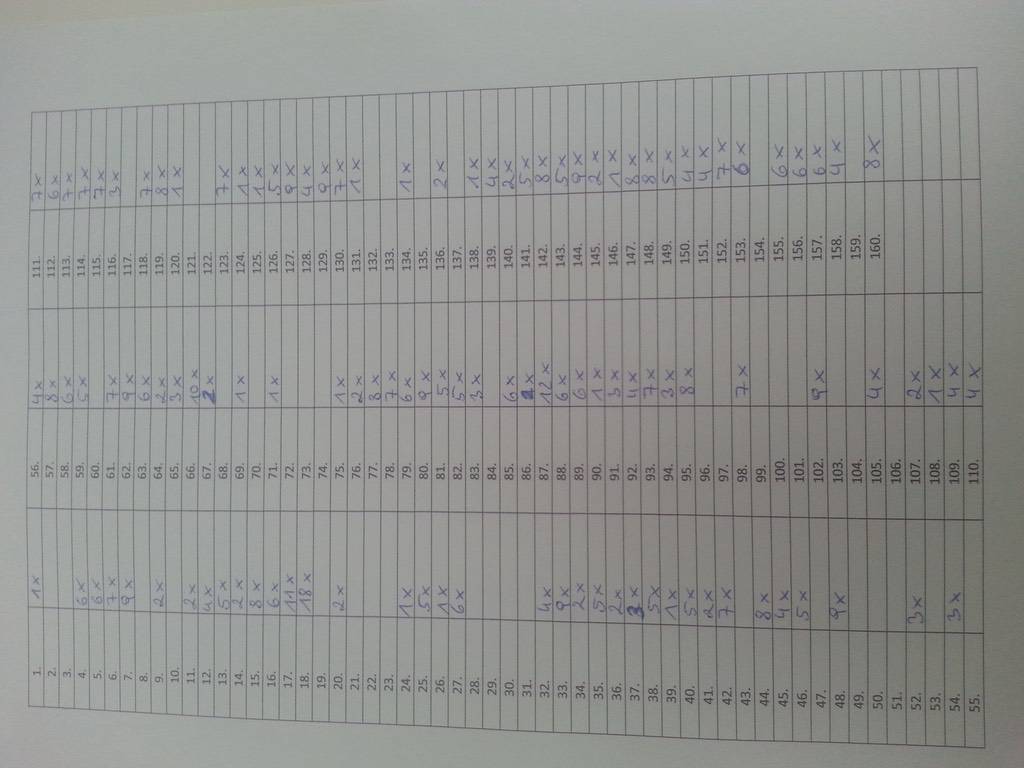 1. 1x 56. 4x 111. 7x
2. 57. 8x 112. 6x
3. 58. 6x 113. 7x
4. 6x 59. 5x 114. 7x
5. 6x 60. 115. 7x
6. 7x 61. 7x 116. 3x
7. 9x 62. 9x 117.
8. 63. 6x 118. 7x
9. 2x 64. 2x 119. 8x
10. 65. 3x 120. 1x
11. 2x 66. 10x 121.
12. 4x 67. 2x 122.
13. 5x 68. 123. 7x
14. 2x 69. 1x 124. 1x
15. 8x 70. 125. 1x
16. 6x 71. 1x 126. 5x
17. 11x 72. 127. 9x
18. 18x 73. 128. 4x
19. 74. 129. 9x
20. 2x 75. 1x 130. 7x
21. 76. 2x 131. 1x
22. 77. 8x 132.
23. 78. 7x 133.
24. 1x 79. 6x 134. 1x
25. 5x 80. 9x 135.
26. 1x 81. 5x 136. 2x
27. 6x 82. 5x 137.
28. 83. 3x 138. 1x
29. 84. 139. 4x
30. 85. 6x 140. 2x
31. 86. 141. 5x
32. 4x 87. 12x 142. 8x
33. 9x 88. 6x 143. 5x
34. 2x 89. 6x 144. 9x
35. 5x 90. 1x 145. 2x
36. 2x 91. 3x 146. 1x
37. 3x 92. 4x 147. 8x
38. 5x 93. 7x 148. 8x
39. 1x 94. 3x 149. 5x
40. 5x 95. 8x 150. 4x
41. 2x 96. 151. 4x
42. 7x 97. 152. 7x
43. 98. 7x 153. 6x
44. 8x 99. 154.
45. 4x 100. 155. 6x
46. 5x 101. 156. 6x
47. 102. 9x 157. 6x
48. 9x 103. 158. 4x
49. 104. 159.
50. 105. 4x 160. 8x
51. 106.
52. 3x 107. 2x
53. 108. 1x
54. 3x 109. 4x
55. 110. 4x